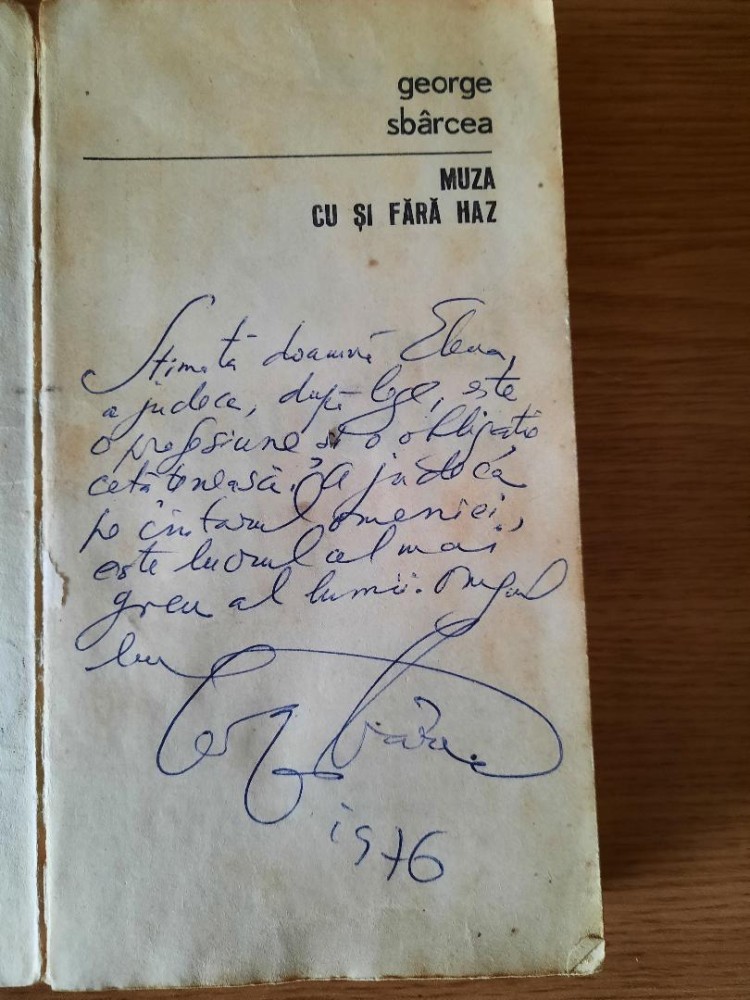 george
sbârcea
MUZA
CU ȘI FĂRĂ HAZ
Stimată doamnă Elena,
a judeca, după lege, este
o profesiune și o obligație
cetățenească. A judeca
pe cîntarul omeniei,
este lucrul al mai
greu al lumii. Omagiul
lui
George Sbârcea
1976